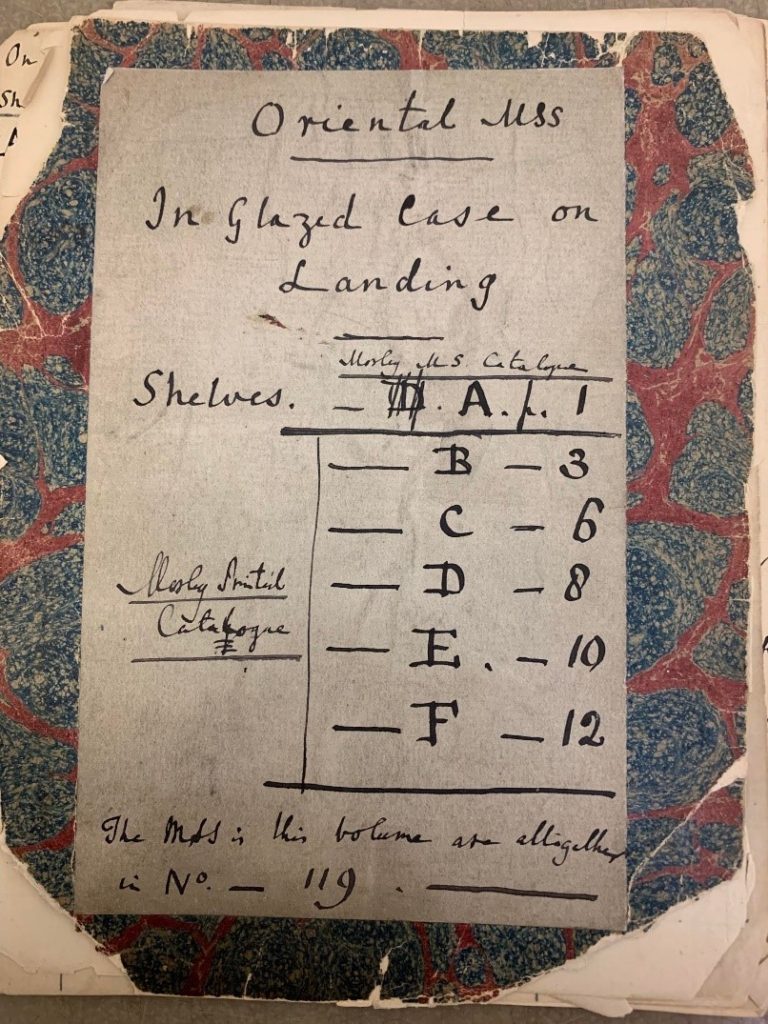 On
Sh
Oriental MSS
In Glazed Case on
Landing
Mosly MS Catalogue
Shelves. — A. p. 1
— B — 3
— C — 6
— D — 8
— E. — 10
— F — 12
Mosly Printed
Catalogue
The MSS in this volume are altogether
in No. — 119 . —